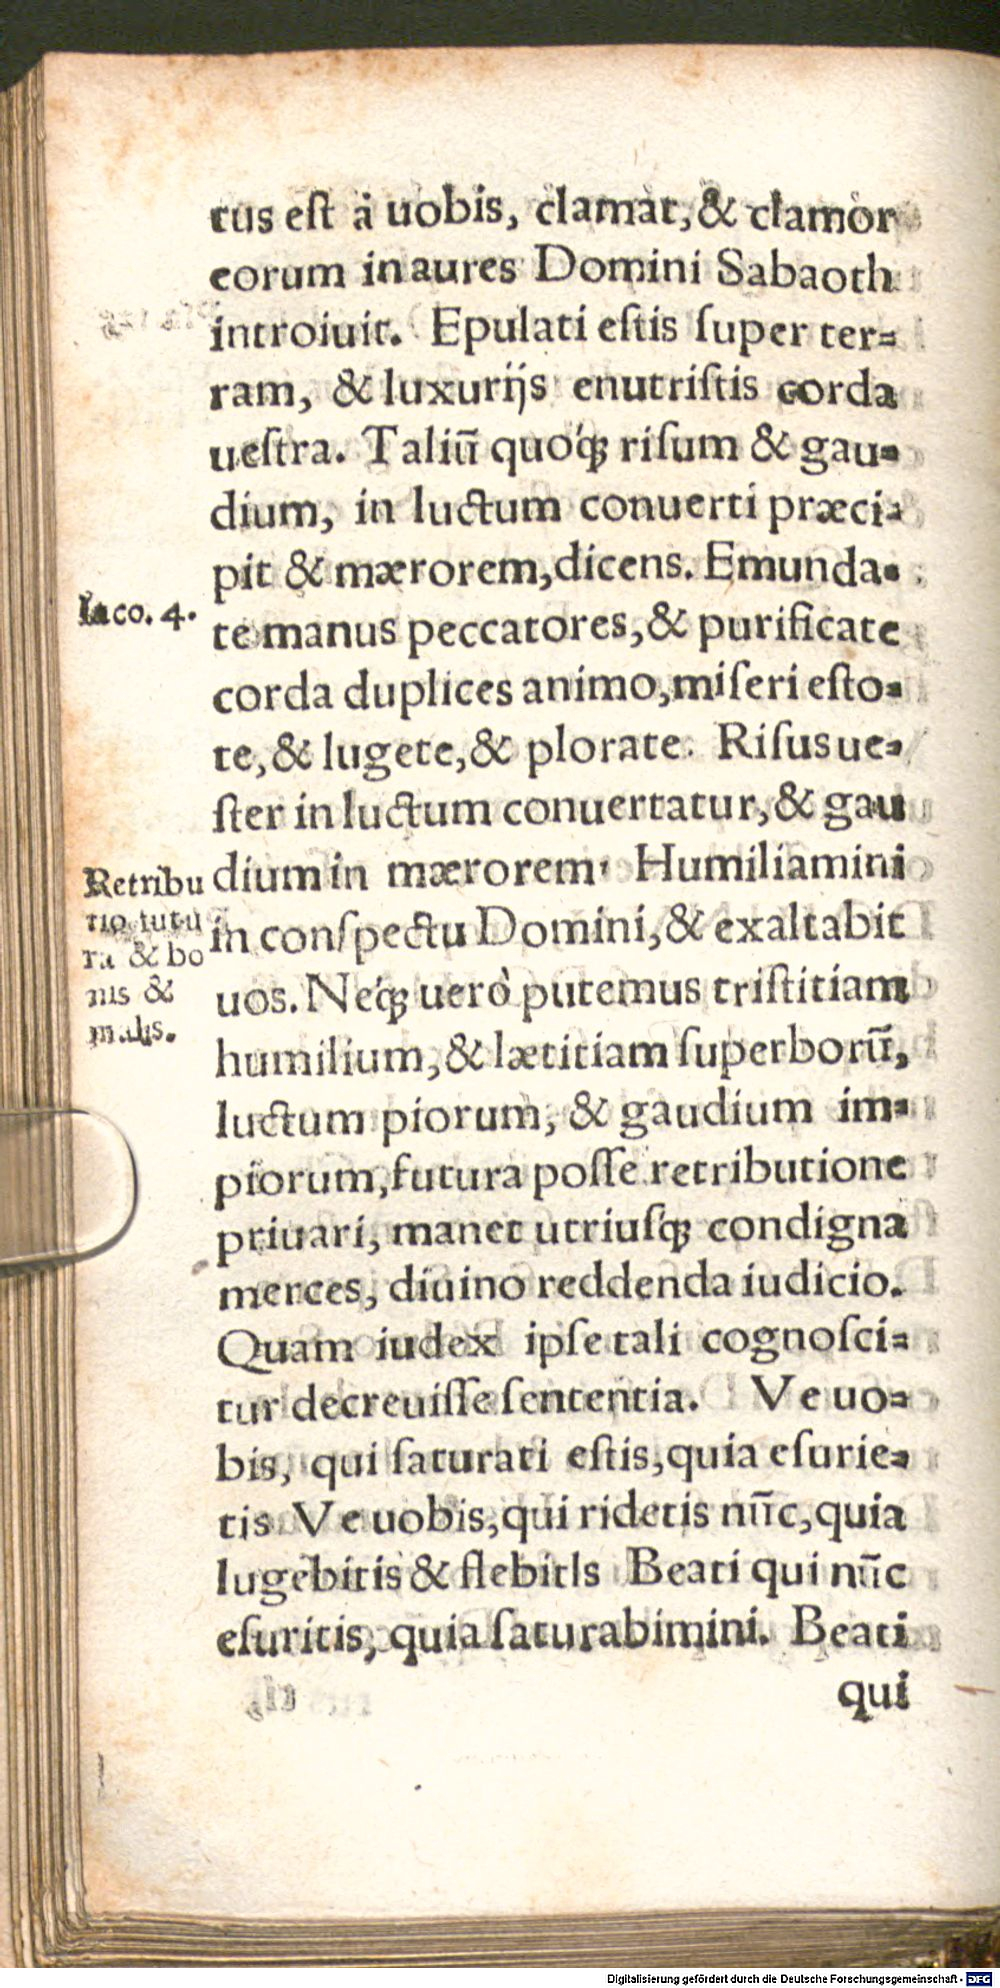 tus est à uobis, clamat, & clamor
eorum in aures Domini Sabaoth
introiuit. Epulati estis super ter=
ram, & luxurijs enutristis corda
uestra. Taliū quoq́; risum & gau=
dium, in luctum conuerti præci=
pit & mærorem, dicens. Emunda=
Iaco. 4.
te manus peccatores, & purificate
corda duplices animo, miseri esto=
te, & lugete, & plorate. Risus ue=
ster in luctum conuertatur, & gau
Retribu
tio futu
ra & bo
nis &
malis.
dium in mærorem. Humiliamini
in conspectu Domini, & exaltabit
uos. Neq́; uerò putemus tristitiam
humilium, & lætitiam superborū,
luctum piorum, & gaudium im=
piorum, futura posse retributione
priuari, manet utriusq; condigna
merces, diuino reddenda iudicio.
Quam iudex ipse tali cognosci=
tur decreuisse sententia. Ve uo=
bis, qui saturati estis, quia esurie=
tis Ve uobis, qui ridetis nūc, quia
lugebitis & flebitIs Beati qui nūc
esuritis, quia saturabimini. Beati
qui
Digitalisierung gefördert durch die Deutsche Forschungsgemeinschaft - DFG